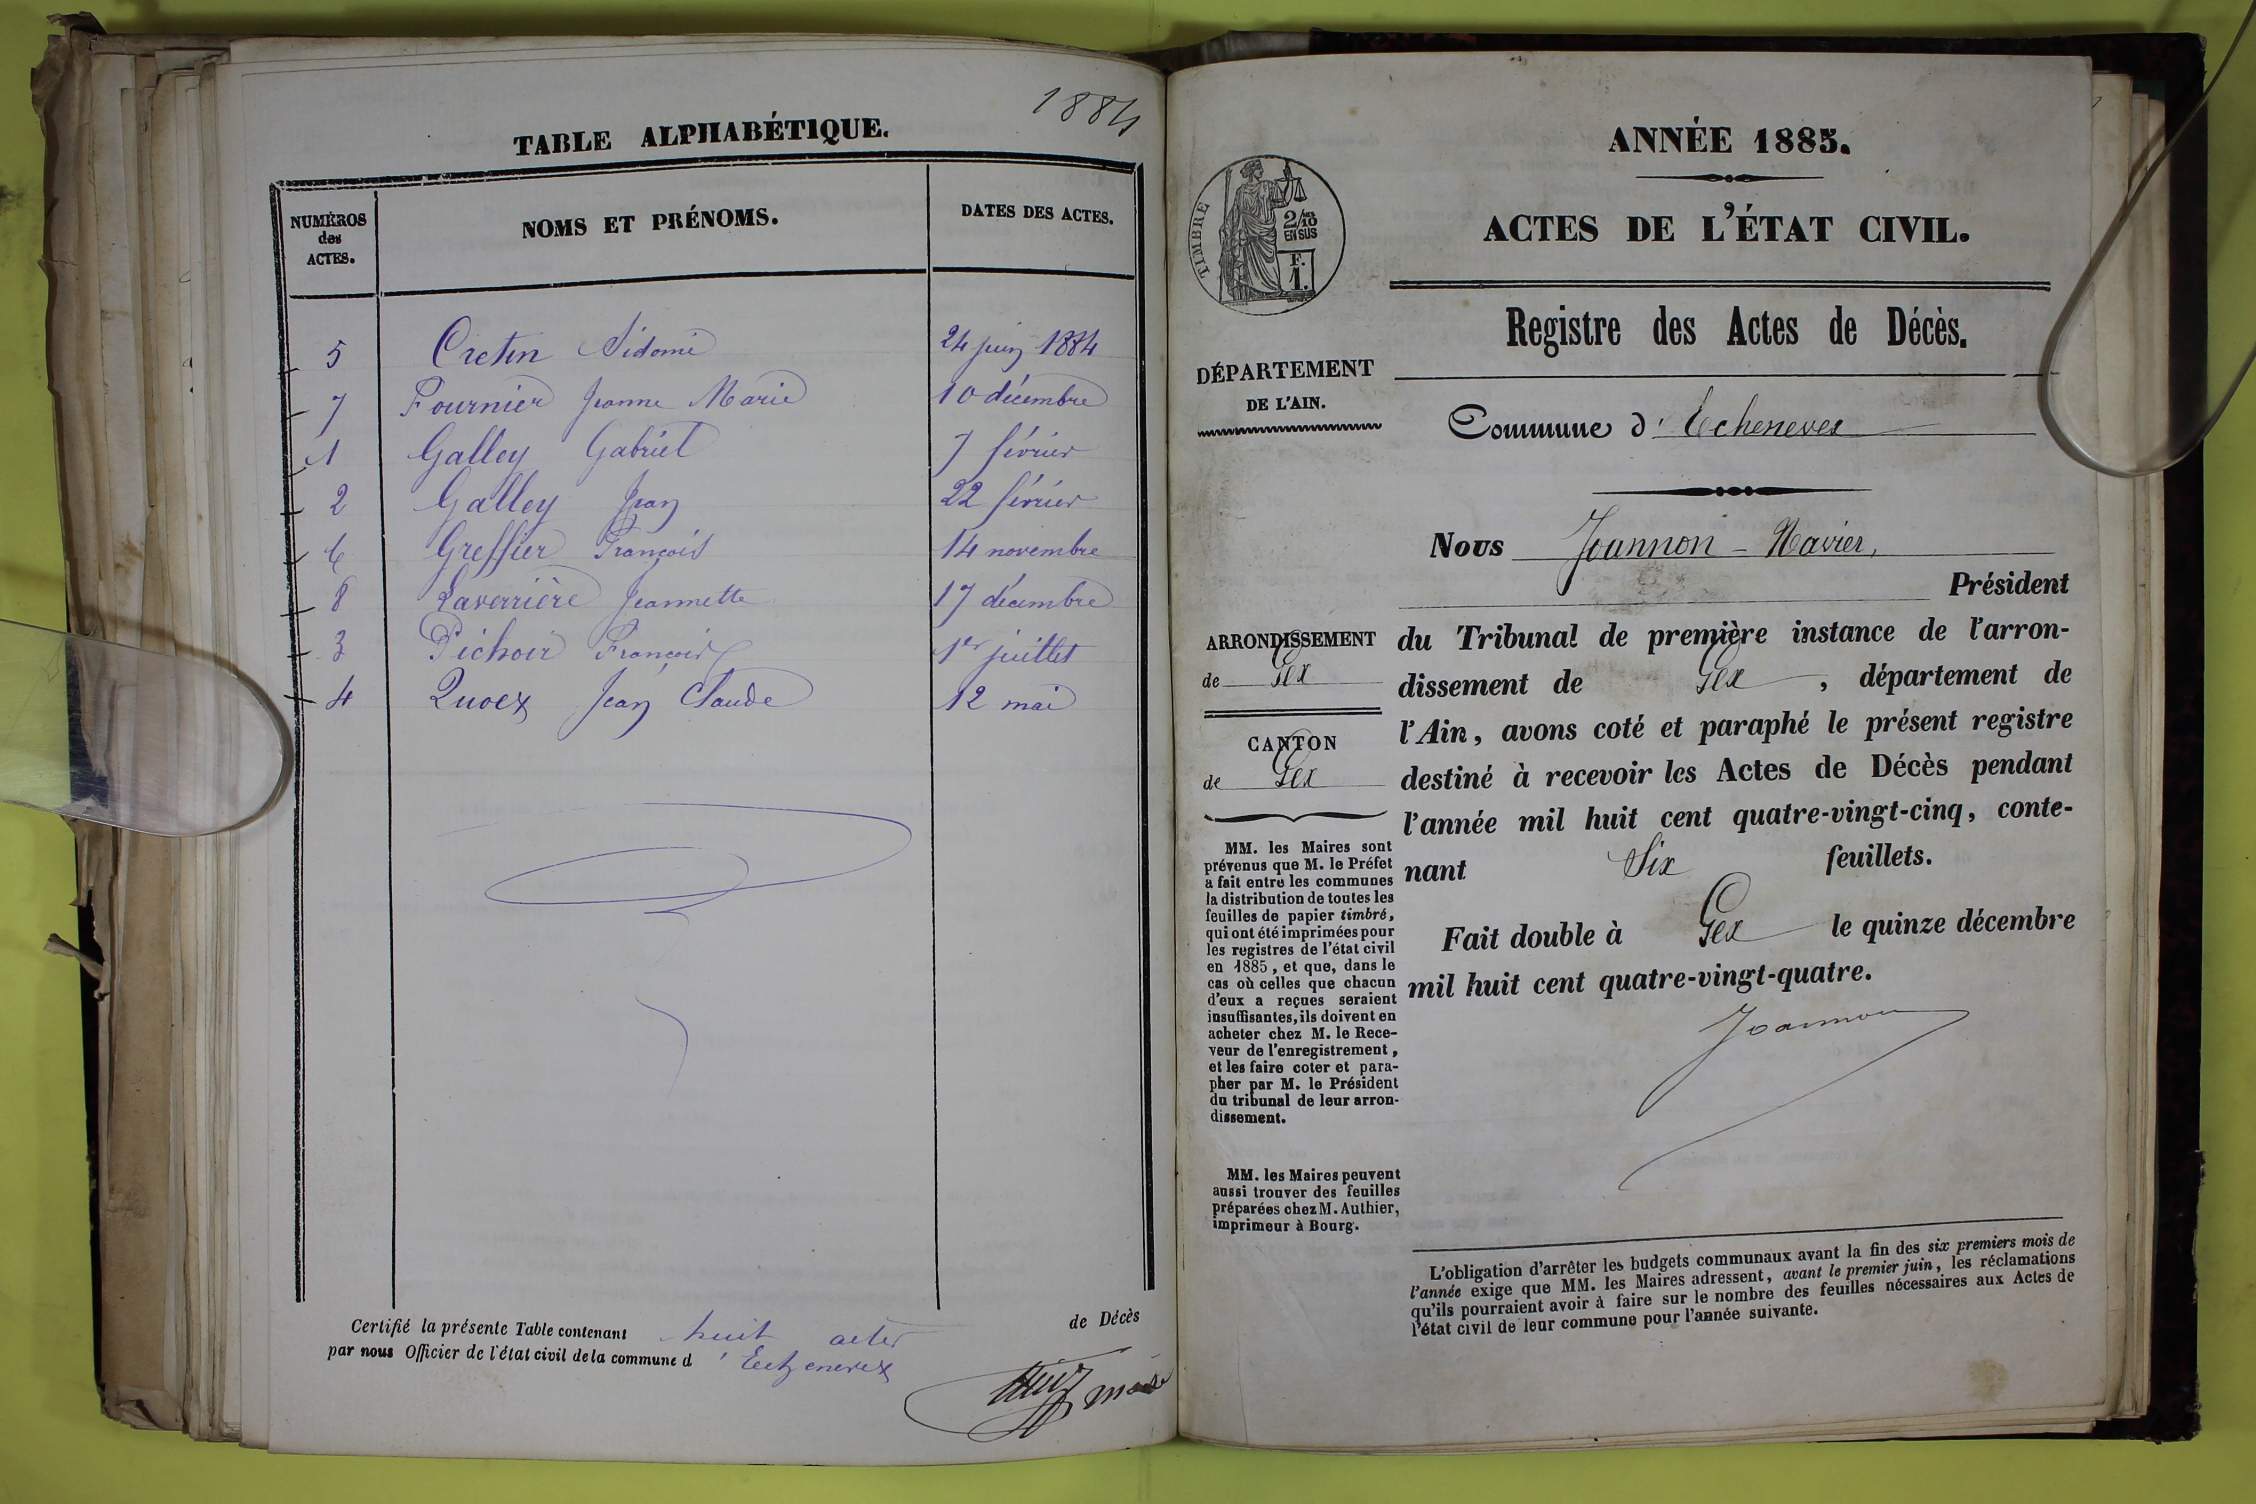 1884
TABLE ALPHABÉTIQUE.
NUMÉROS des ACTES.
NOMS ET PRÉNOMS.
DATES DES ACTES.
5 Cretin Sidonie 24 juin 1884
7 Fournier Jeanne Marie 10 décembre
1 Galley Gabriel 7 février
2 Galley Jean 22 février
6 Greffier François 14 novembre
8 Laverrière Jeannette 17 décembre
3 Pichoir François 1er juillet
4 Quoex Jean Claude 12 mai
Certifié la présente Table contenant huit actes de Décès
par nous Officier de l'état civil de la commune d'Echenevex
ANNÉE 1885.
ACTES DE L'ÉTAT CIVIL.
TIMBRE
2/10 EN SUS
F. 1.
Registre des Actes de Décès.
DÉPARTEMENT
DE L'AIN.
Commune d'Echenevex
Nous Joannon-Xavier,
Président
du Tribunal de première instance de l'arron-
dissement de Gex, département de
l'Ain, avons coté et paraphé le présent registre
destiné à recevoir les Actes de Décès pendant
l'année mil huit cent quatre-vingt-cinq, conte-
nant Six feuillets.
Fait double à Gex le quinze décembre
mil huit cent quatre-vingt-quatre.
Joannon
ARRONDISSEMENT
de Gex
CANTON
de Gex
MM. les Maires sont
prévenus que M. le Préfet
a fait entre les communes
la distribution de toutes les
feuilles de papier timbré,
qui ont été imprimées pour
les registres de l'état civil
en 1885, et que, dans le
cas où celles que chacun
d'eux a reçues seraient
insuffisantes, ils doivent en
acheter chez M. le Rece-
veur de l'enregistrement,
et les faire coter et para-
pher par M. le Président
du tribunal de leur arron-
dissement.
MM. les Maires peuvent
aussi trouver des feuilles
préparées chez M. Authier,
imprimeur à Bourg.
L'obligation d'arrêter les budgets communaux avant la fin des six premiers mois de
l'année exige que MM. les Maires adressent, avant le premier juin, les réclamations
qu'ils pourraient avoir à faire sur le nombre des feuilles nécessaires aux Actes de
l'état civil de leur commune pour l'année suivante.